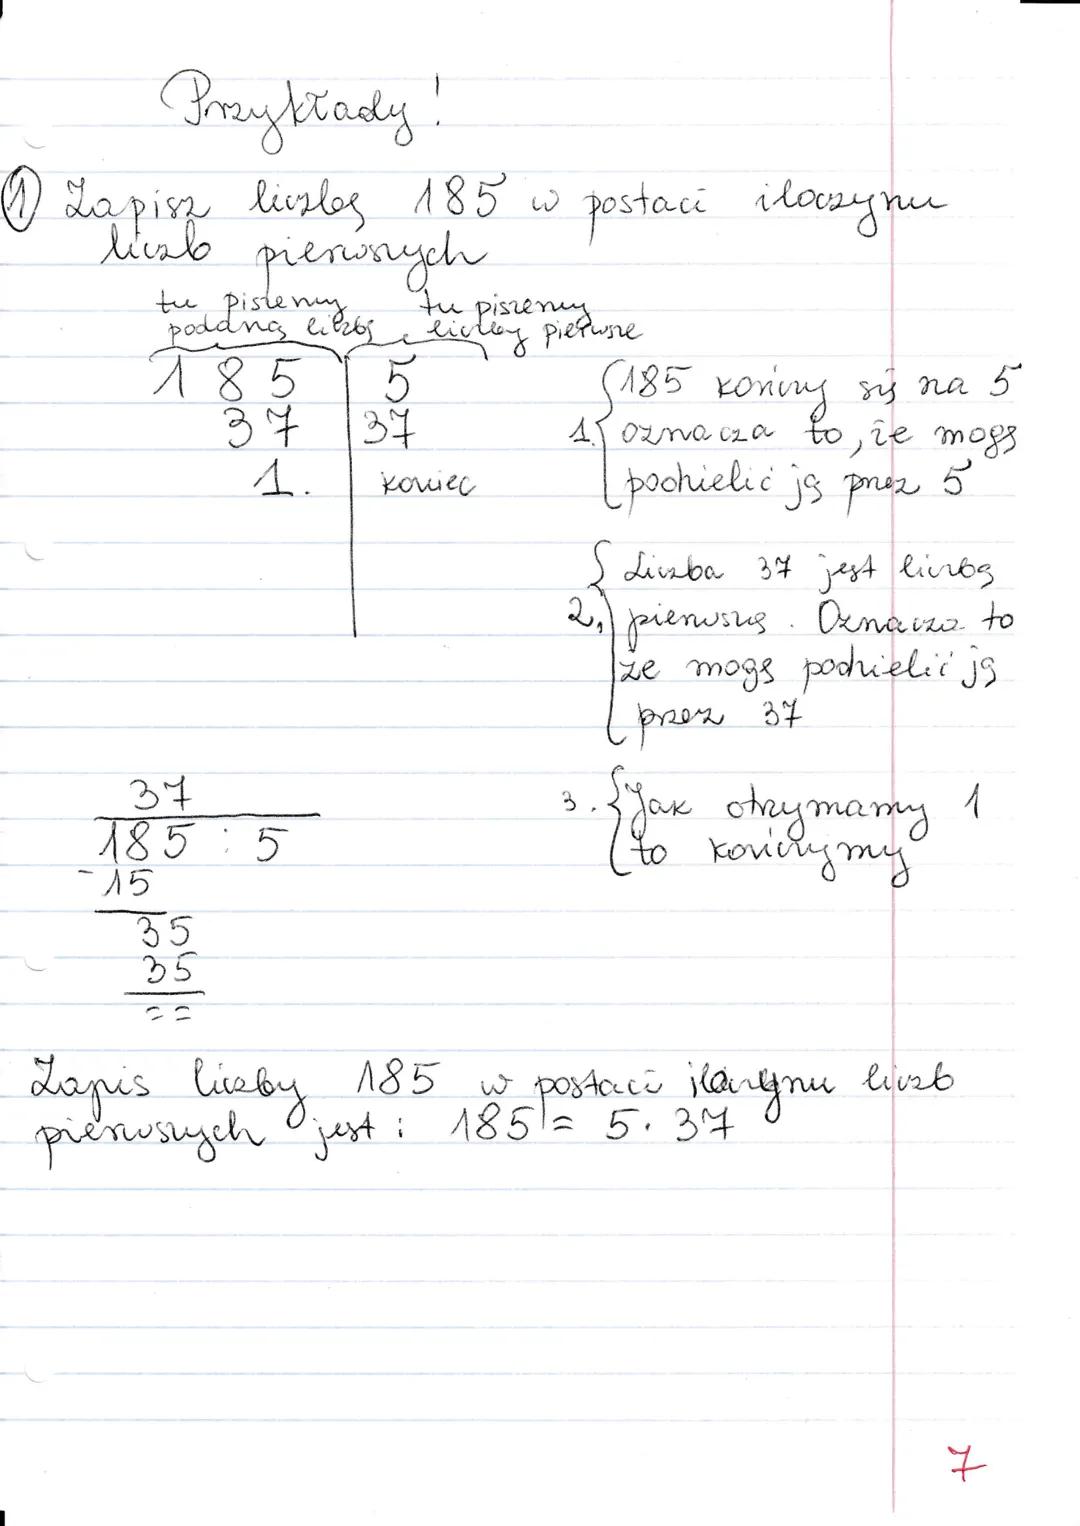 Przykłady!
① Zapisz liczbę 185 w postaci iloczynu
liczb pierwszych
tu piszemy
podaną liczbę
tu piszemy
liczby pierwsze
185 | 5
37 | 37
1. | koniec
1. { 185 kończy się na 5
oznacza to, że mogę
podzielić ją przez 5
2. { Liczba 37 jest liczbą
pierwszą. Oznacza to
że mogę podzielić ją
przez 37
3. { Jak otrzymamy 1
to kończymy
37
185 : 5
-15
35
35
= =
Zapis liczby 185 w postaci iloczynu liczb
pierwszych jest: 185 = 5 · 37
7